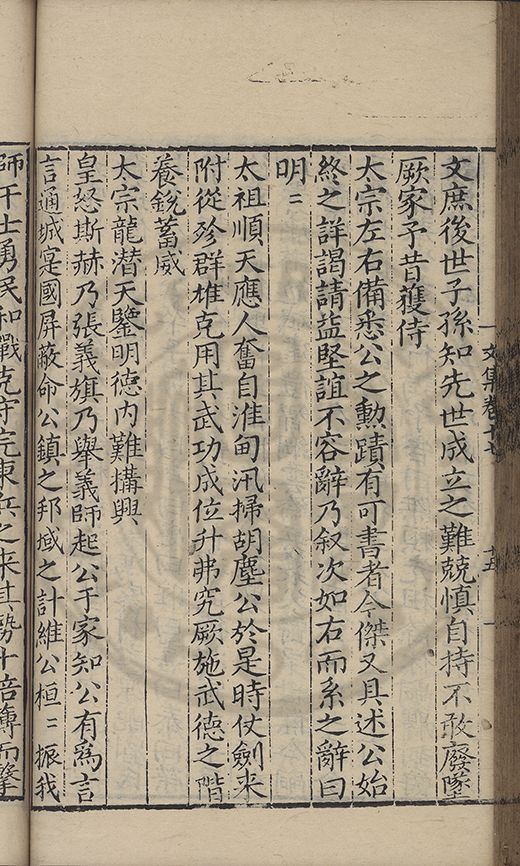 文集卷十七
十五
文庶後世子孫知先世成立之難兢慎自持不敢廢墜
厥家予昔獲侍
太宗左右備悉公之勳蹟有可書者今傑又具述公始
終之詳謁請益堅誼不容辭乃叙次如右而系之辭曰
明二
太祖順天應人奮自淮甸汛掃胡塵公於是時仗劍来
附從殄群雄克用其武功成位升弗究厥施武德之階
養銳蓄威
太宗龍潛天鑒明德内難搆興
皇怒斯赫乃張義旗乃舉義師起公于家知公有爲言
言通城寔國屏蔽命公鎮之邦域之計維公桓二振我
師干士勇民和戰克守完東兵之来其勢十倍薄而擊